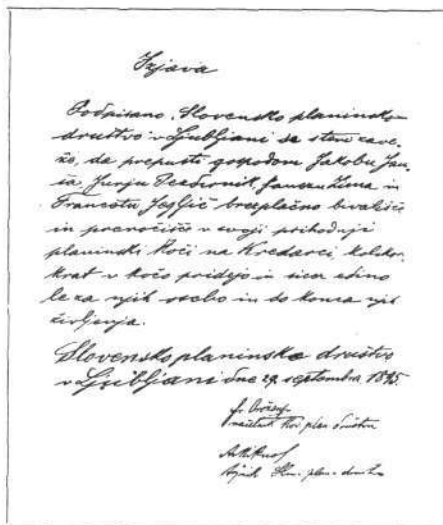 Izjava
Podpisano „Slovensko planinsko
društvo v Ljubljani se s tem zave-
že, da prepusti gospodom Jakobu
in
Francetu brezplačno bivališče
in prenočišče v svoji prihodnji
planinski koči na Kredarici kolikor-
krat v kočo pridejo in sicer edino
le za njih osebo in do konca njih
življenja.
Slovensko planinsko društvo
v Ljubljani dne 29. septembra 1895.
fr. Orožen
načelnik Slov. plan. društva